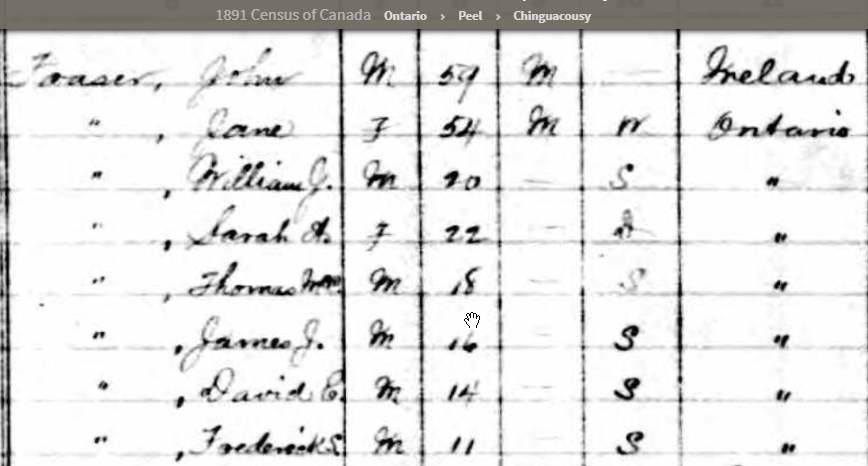 1891 Census of Canada Ontario › Peel › Chinguacousy
Fraser, John M 59 M — Ireland
" , Jane F 54 M W Ontario
" , William J. M 20 — S "
" , Sarah A. F 22 — "
" , Thomas M 18 — S "
" , James J. M 16 — S "
" , David E. M 14 — S "
" , Frederick S. M 11 — S "